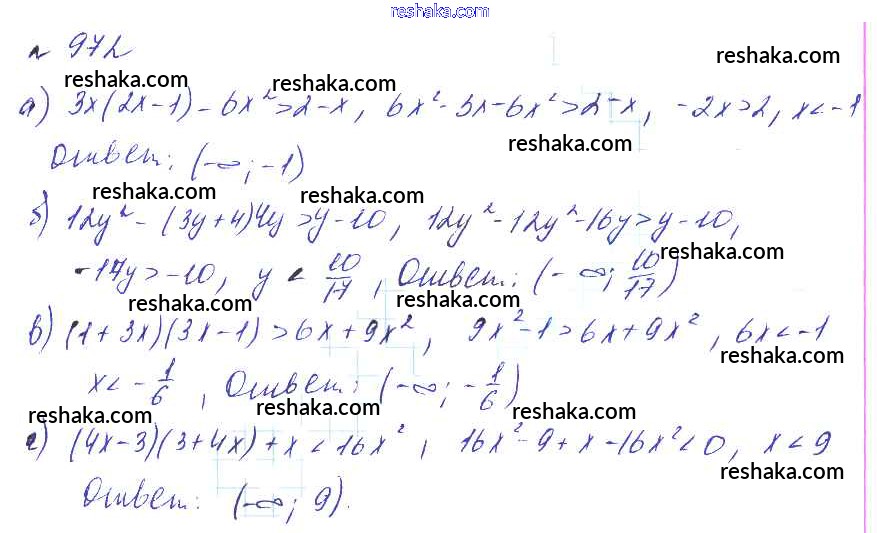 reshaka.com
№ 972
reshaka.com reshaka.com reshaka.com
а) 3x(2x-1) - 6x² > 2-x, 6x² - 3x - 6x² > 2-x, -2x > 2, x < -1
reshaka.com
Ответ: (-∞; -1)
reshaka.com reshaka.com
б) 12y² - (3y+4)4y > y-10, 12y² - 12y² - 16y > y-10,
reshaka.com
-17y > -10, y < 10/17, Ответ: (-∞; 10/17)
reshaka.com reshaka.com
в) (1+3x)(3x-1) > 6x+9x², 9x²-1 > 6x+9x², 6x < -1
reshaka.com
x < -1/6, Ответ: (-∞; -1/6)
reshaka.com reshaka.com reshaka.com
г) (4x-3)(3+4x)+x < 16x², 16x²-9+x-16x² < 0, x < 9
reshaka.com
Ответ: (-∞; 9).